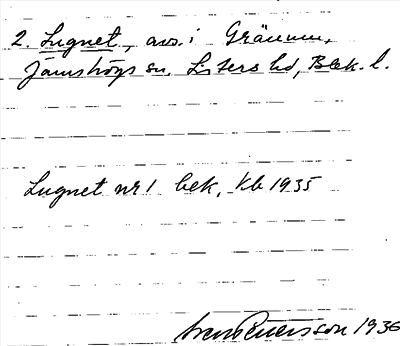 2. Lugnet, avs. i Gränum,
Jämshögs sn, Listers hd, Blek. l.
Lugnet nr 1 bek, kb 1935
1936